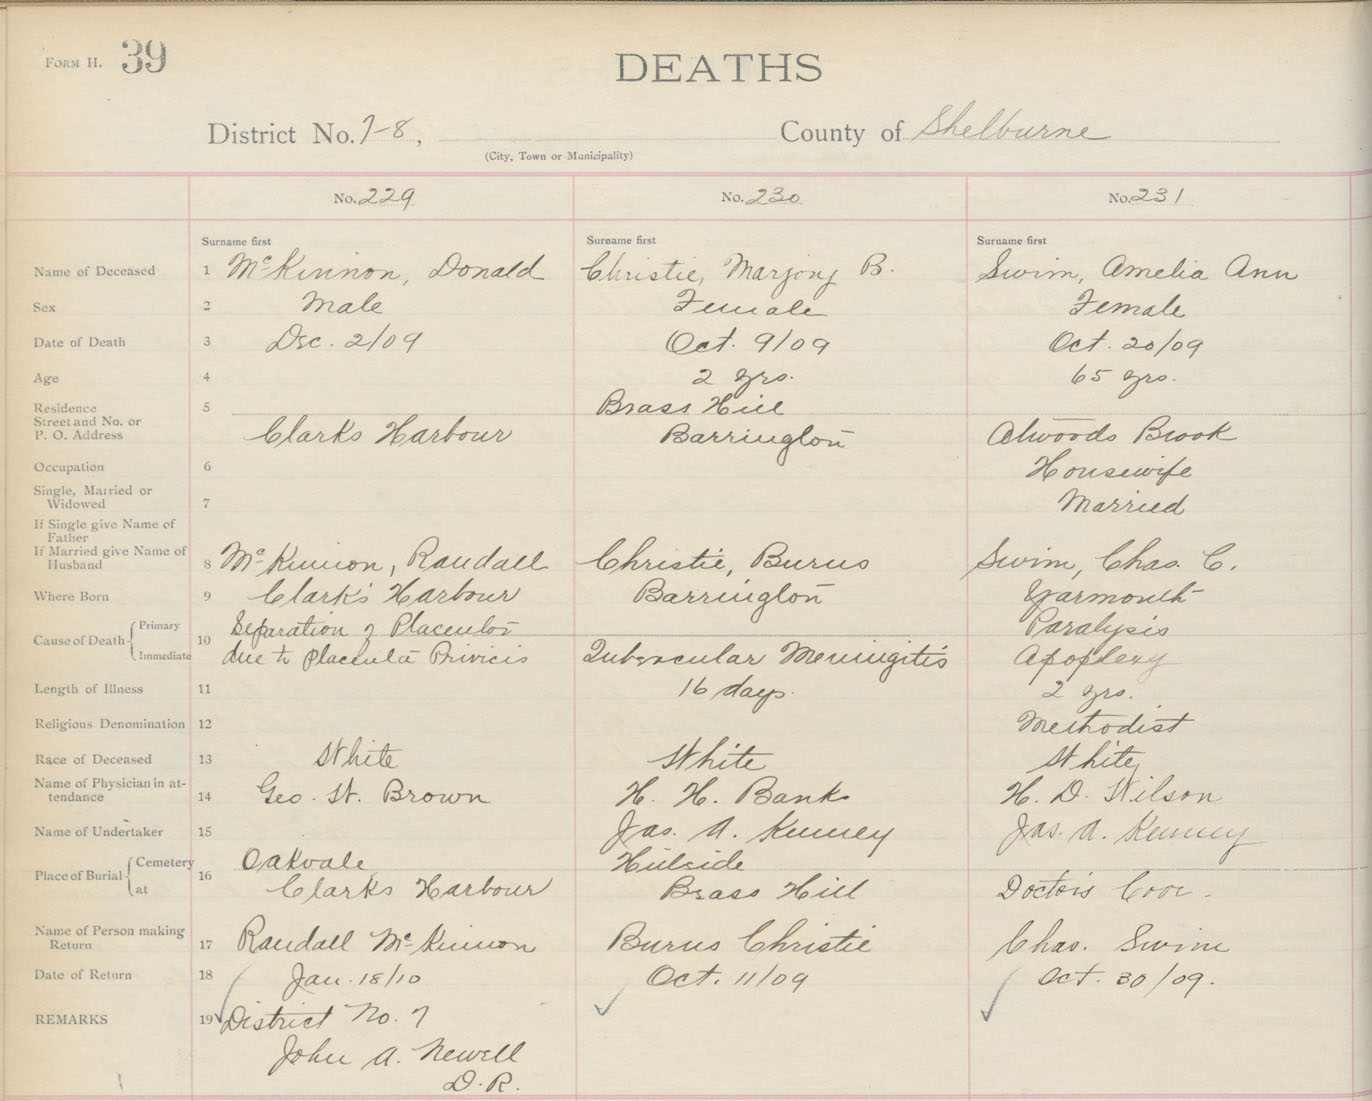 FORM H. 39
DEATHS
District No. 7-8, County of Shelburne
(City, Town or Municipality)
No. 229 No. 230 No. 231
Surname first Surname first Surname first
Name of Deceased 1 McKinnon, Donald Christie, Marjory B. Swim, Amelia Ann
Sex 2 Male Female Female
Date of Death 3 Dec. 2/09 Oct. 9/09 Oct. 20/09
Age 4 2 yrs. 65 yrs.
Residence 5 Brass Hill
Street and No. or
P. O. Address Clarks Harbour Barrington Atwoods Brook
Occupation 6 Housewife
Single, Married or
Widowed 7 Married
If Single give Name of
Father
If Married give Name of
Husband 8 McKinnon, Randall Christie, Burns Swim, Chas. C.
Where Born 9 Clark's Harbour Barrington Yarmouth
Cause of Death Primary 10 Separation of Paralysis
Immediate due to Tubercular Meningitis Apoplexy
Length of Illness 11 16 days. 2 yrs.
Religious Denomination 12 Methodist
Race of Deceased 13 White White White
Name of Physician in at-
tendance 14 Geo. W. Brown H. H. Banks H. D. Wilson
Name of Undertaker 15 Jas. A. Kenney Jas. A. Kenney
Place of Burial Cemetery 16 Oakvale Hillside
at Clarks Harbour Brass Hill Doctors Cove.
Name of Person making
Return 17 Randall McKinnon Burns Christie Chas. Swim
Date of Return 18 Jan. 18/10 Oct. 11/09 Oct. 30/09.
REMARKS 19 District No. 7
John A. Newell
D. R.